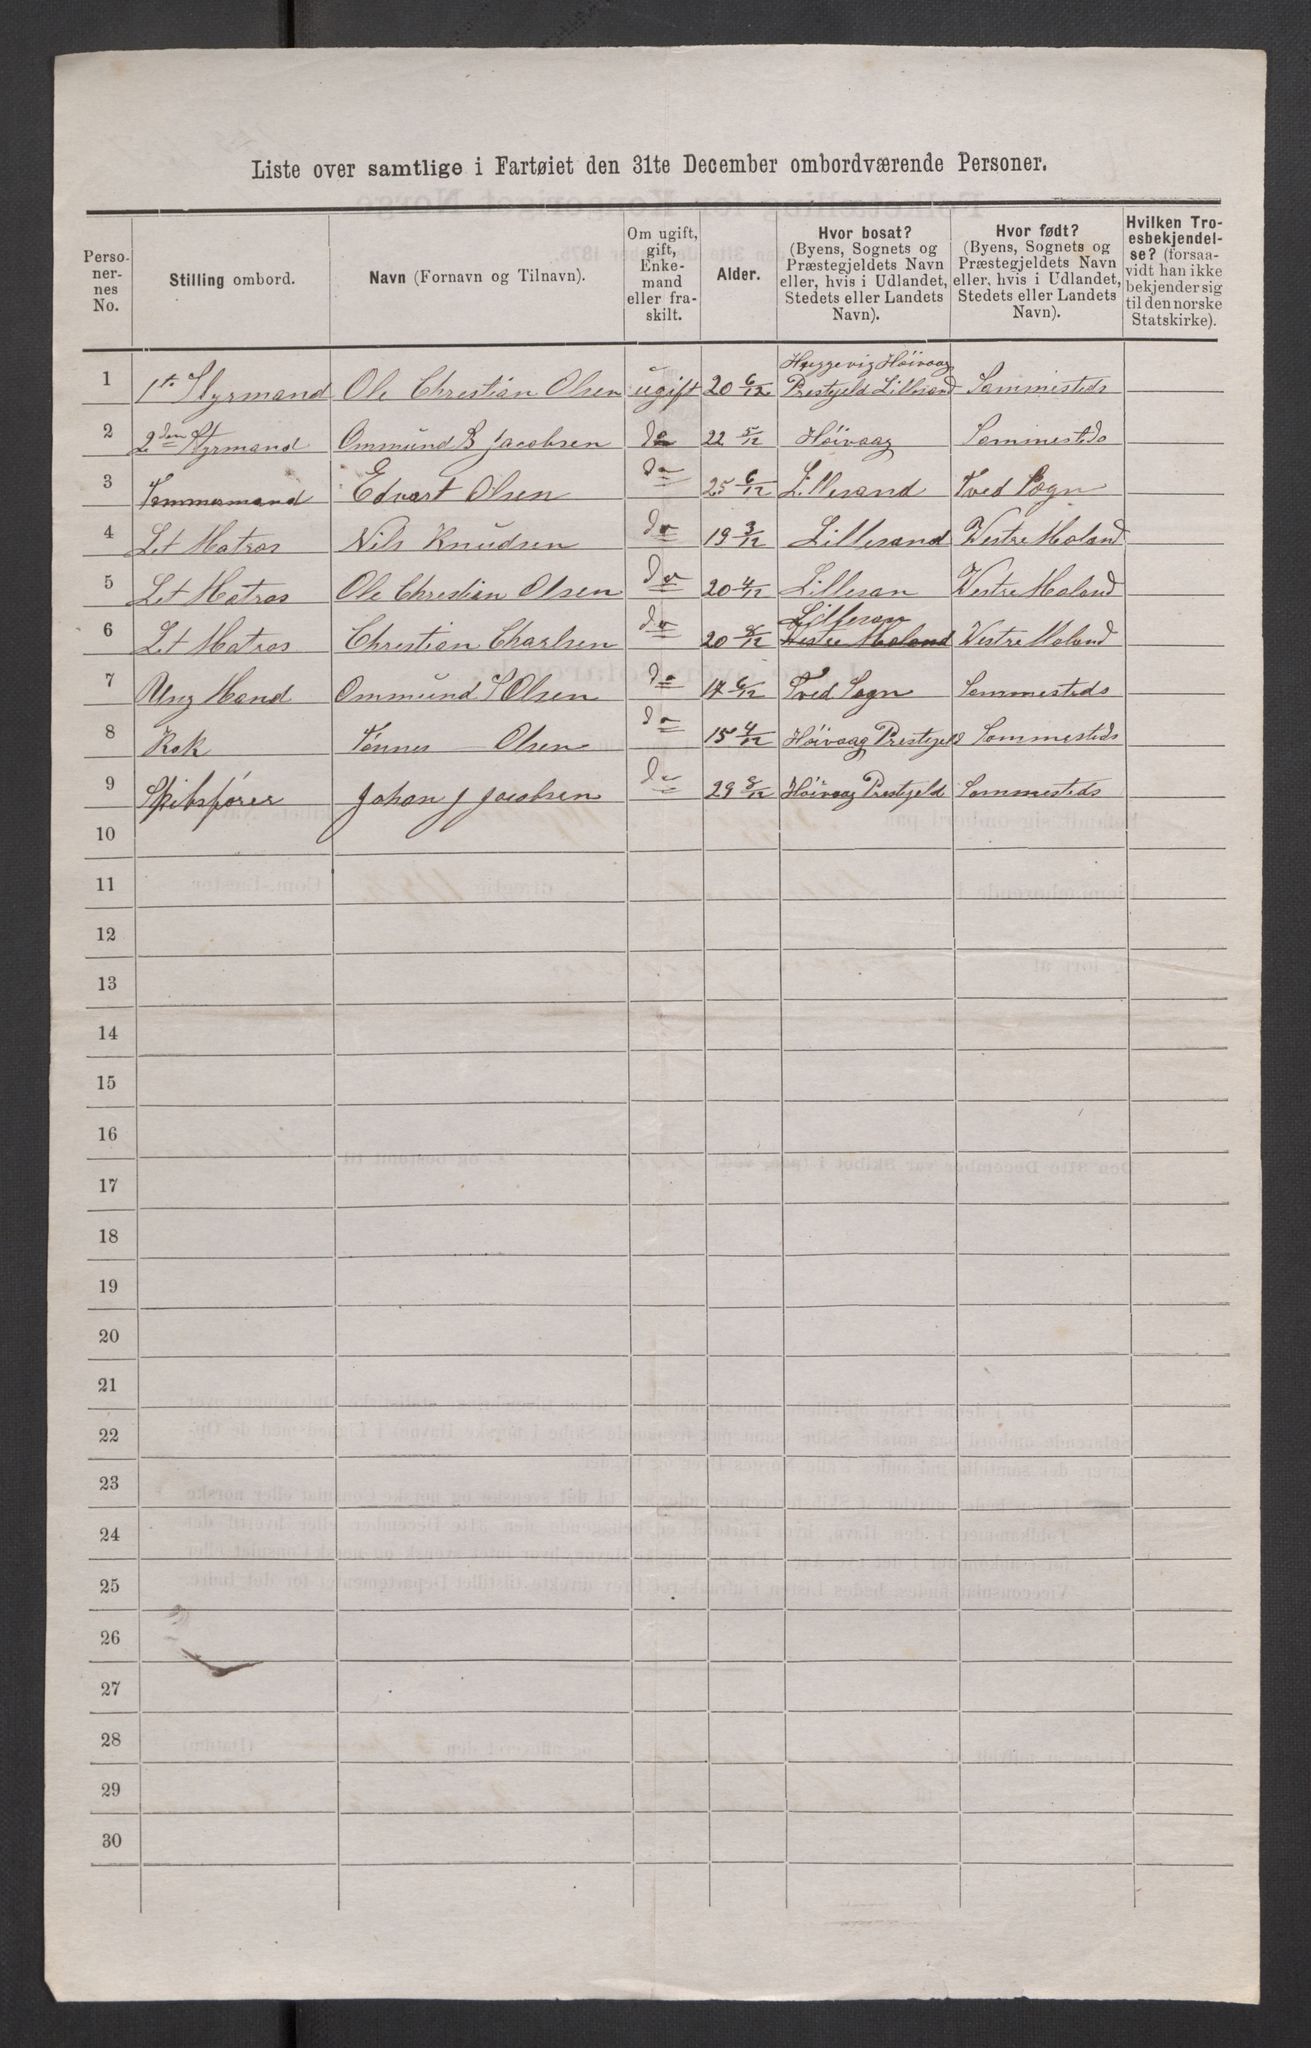 Liste over samtlige i Fartøiet den 31te December ombordværende Personer.
Personernes No. | Stilling ombord. | Navn (Fornavn og Tilnavn). | Om ugift, gift, Enkemand eller fraskilt. | Alder. | Hvor bosat? (Byens, Sognets og Præstegjeldets Navn eller, hvis i Udlandet, Stedets eller Landets Navn). | Hvor født? (Byens, Sognets og Præstegjeldets Navn eller, hvis i Udlandet, Stedets eller Landets Navn). | Hvilken Troesbekjendelse? (forsaavidt han ikke bekjender sig til den norske Statskirke).
1 | 1ste Styrmand | Ole Christian Olsen | ugift | 20 6/12 | Høivaag Prestejeld Lillesand | Sammesteds
2 | 2den Styrmand | Ommund B Jacobsen | do | 22 5/12 | Höivaag | Sammesteds
3 | Tømmermand | Edvart Olsen | do | 25 6/12 | Lillesand | Tved Sogn
4 | Let Matros | Nils Knudsen | do | 19 3/12 | Lillesand | Westre Moland
5 | Let Matros | Ole Christian Olsen | do | 20 4/12 | Lillesan | Westre Moland
6 | Let Matros | Christian Charlsen | do | 20 8/12 | Lillesan Westre Moland | Westre Moland
7 | Ung Mand | Ommund S Olsen | do | 17 6/12 | Tved Sogn | Sammesteds
8 | Kok | Tønnes Olsen | do | 15 4/12 | Höivaag Prestejeld | Sammesteds
9 | Skibsfører | Johan J Jacobsen | do | 29 8/12 | Höivaag Prestejeld | Sammesteds
10
11
12
13
14
15
16
17
18
19
20
21
22
23
24
25
26
27
28
29
30